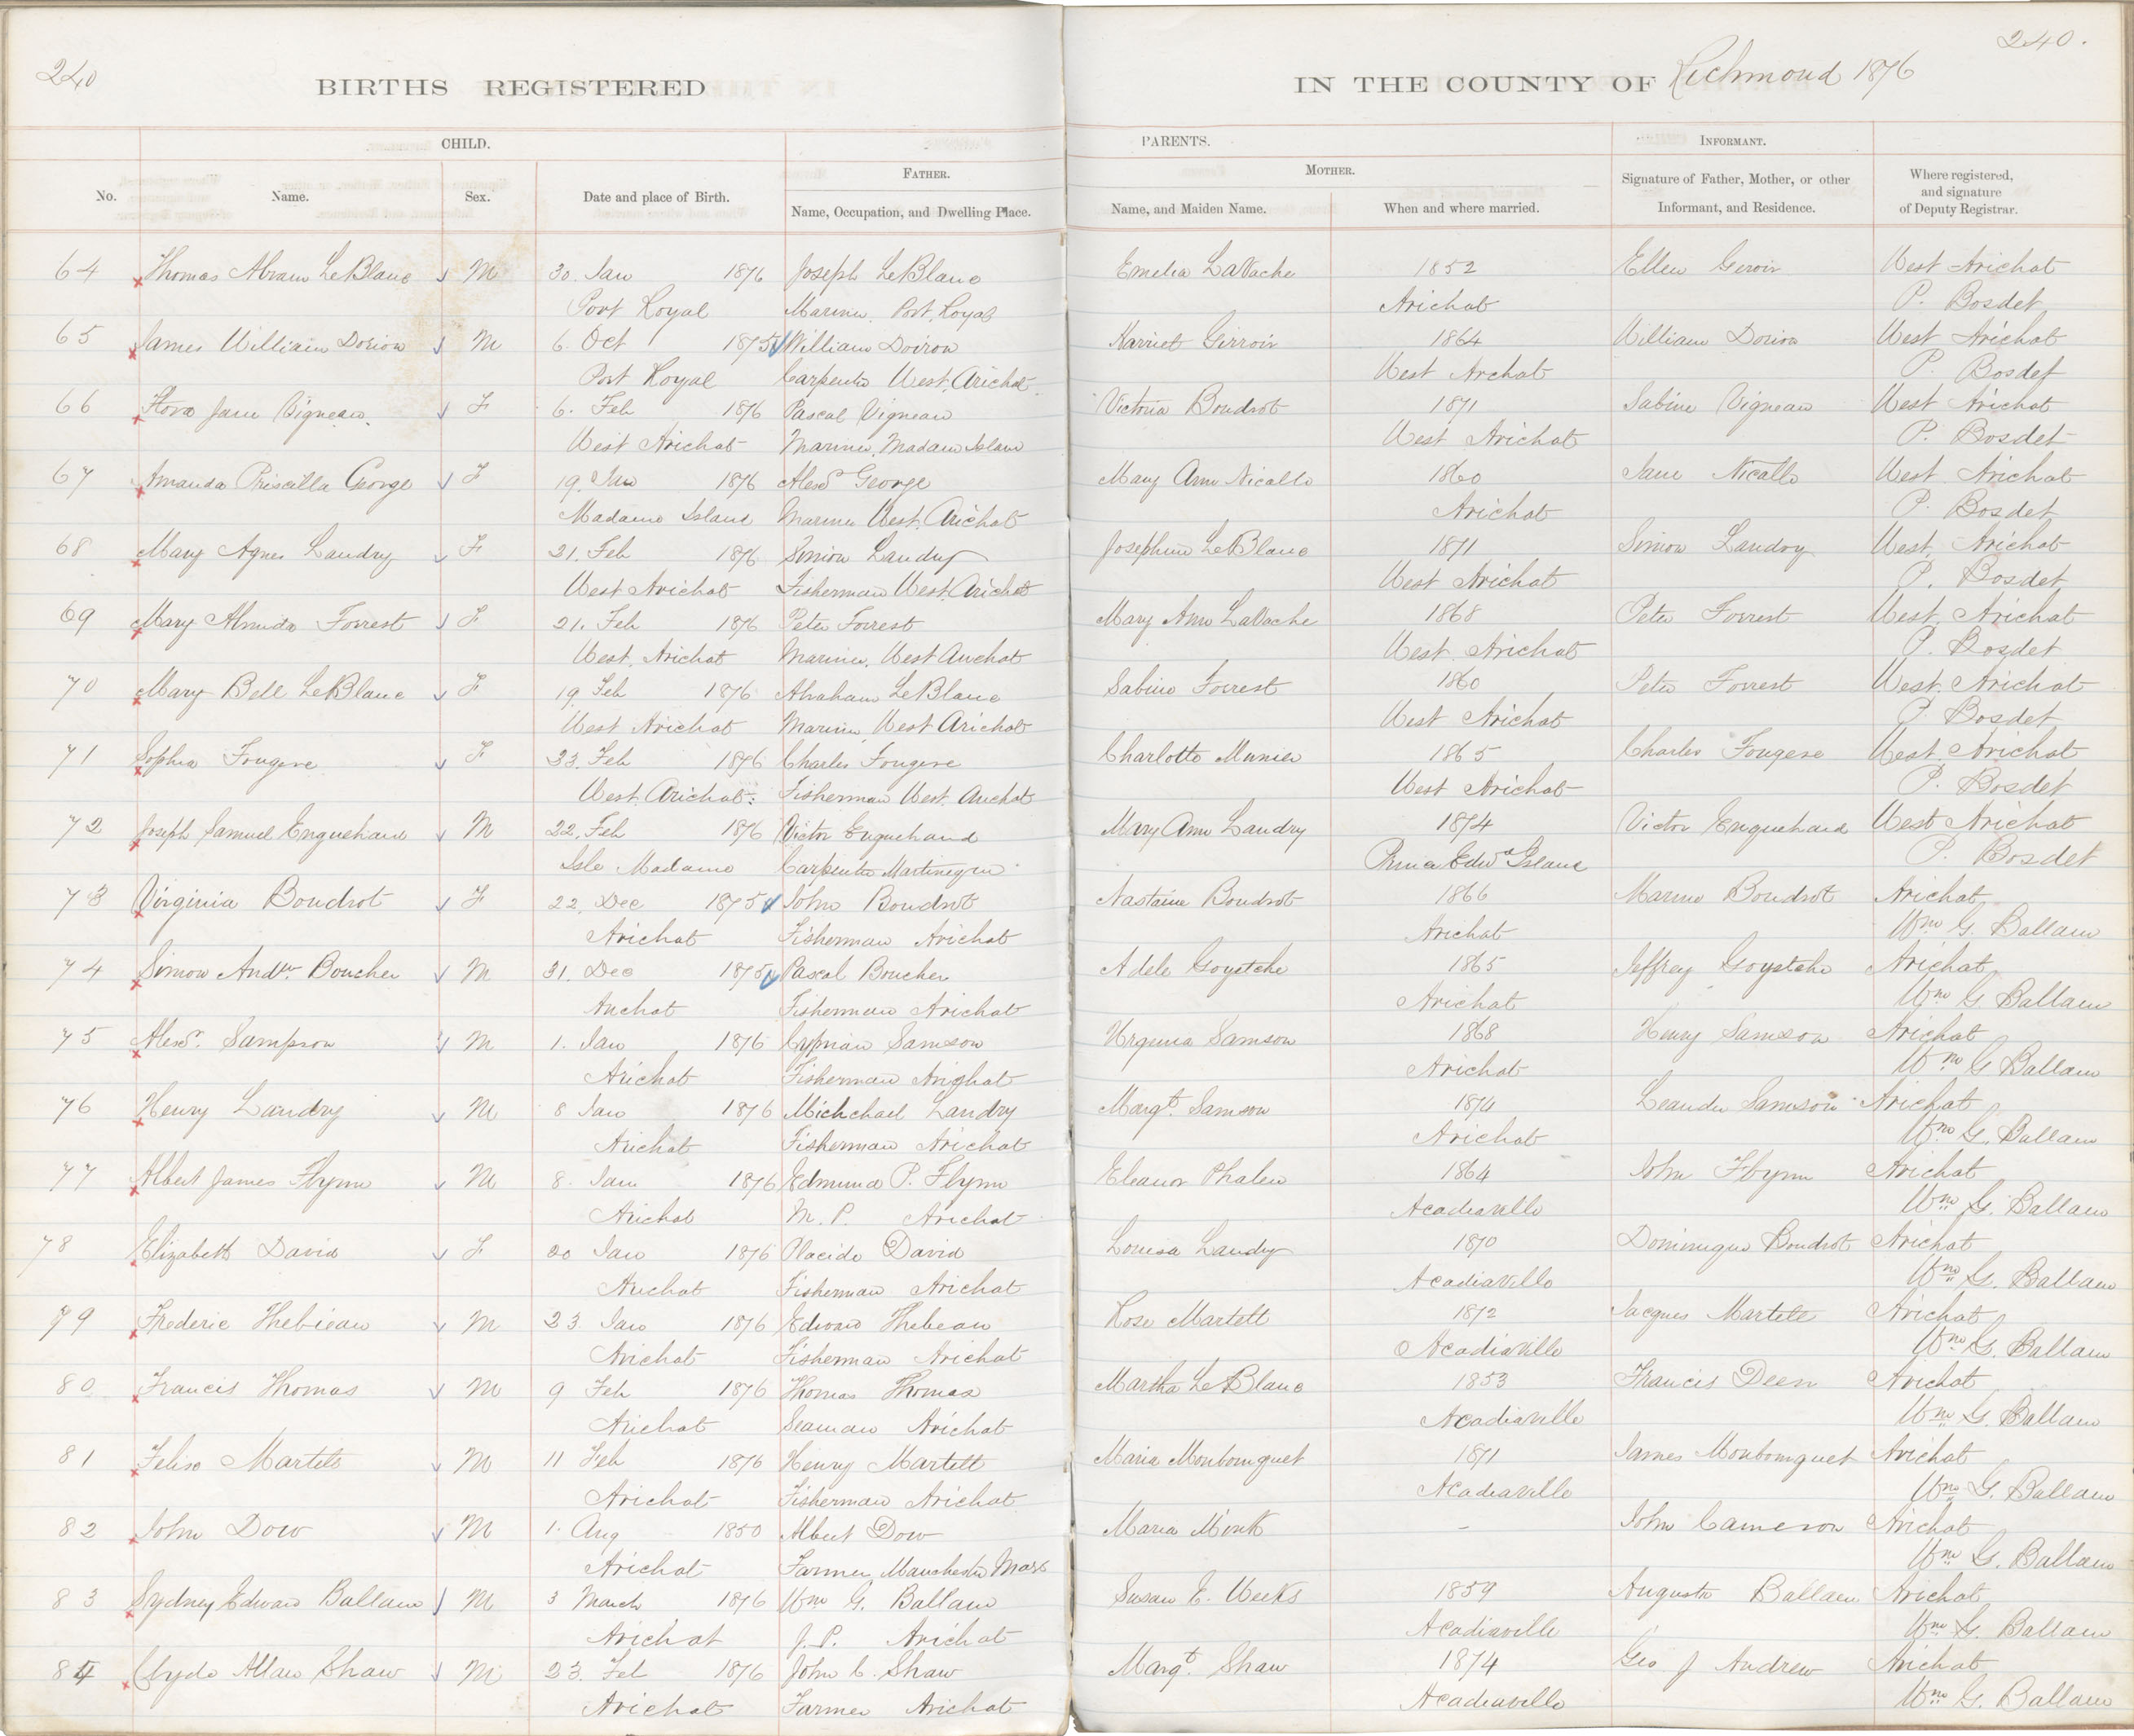 240
240.
BIRTHS REGISTERED
IN THE COUNTY OF Richmond 1876
CHILD.
PARENTS.
INFORMANT.
FATHER.
MOTHER.
No.
Name.
Sex.
Date and place of Birth.
Name, Occupation, and Dwelling Place.
Name, and Maiden Name.
When and where married.
Signature of Father, Mother, or other
Informant, and Residence.
Where registered,
and signature
of Deputy Registrar.
64 Thomas Abram LeBlanc M 30. Jan 1876 Joseph LeBlanc Emelia LaVache 1852 Ellen Geroir West Arichat
Port Royal Mariner. Port Royal Arichat P. Bosdet
65 James William Dorion M 6. Oct 1875 William Doiron Harriet Girroir 1864 William Doiron West Arichat
Port Royal Carpenter West. Arichat West Archat P. Bosdet
66 Flora Jane Vigneau. F 6. Feb 1876 Pascal Vigneau Victoria Boudrot 1871 Sabine Vigneau West Arichat
West Arichat Mariner, Madam Island West Arichat P. Bosdet
67 Amanda Priscilla George F 19. Jan 1876 Alexr George Mary Ann Nicolls 1860 Jane Nicolls West Arichat
Madame Island Mariner West. Arichat Arichat P. Bosdet
68 Mary Agnes Landry F 21. Feb 1876 Simion Landry Josephine LeBlanc 1871 Simon Landry West. Arichat
West Arichat Fisherman West. Arichat West Arichat P. Bosdet
69 Mary Almida Forrest F 21. Feb 1876 Peter Forrest Mary Ann LaVache 1868 Peter Forrest West. Arichat
West. Arichat Mariner, West Arichat West Arichat P. Bosdet
70 Mary Bell LeBlanc F 19. Feb 1876 Abraham LeBlanc Sabine Forrest 1860 Peter Forrest West. Arichat
West Arichat Mariner, West Arichat West Arichat P. Bosdet
71 Sophia Fougere F 23. Feb 1876 Charles Fougere Charlotte Munier 1865 Charles Fougere West. Arichat
West. Arichat. Fisherman West. Arichat West Arichat P. Bosdet
72 Joseph Samuel Enguehard M 22. Feb 1876 Victor Enguehand Mary Ann Landry 1874 Victor Enguehard West Arichat
Isle Madame Carpenter Prince Edwd Island P. Bosdet
73 Virginia Boudrot F 22. Dec 1875 John Boudrot Boudrot 1866 Boudrot Arichat
Arichat Fisherman Arichat Arichat Wm G. Ballam
74 Simon Andw. Boucher M 31. Dec 1875 Pascal Boucher Adele Goyetche 1865 Jeffrey Goyetche Arichat
Arichat Fisherman Arichat Arichat Wm G. Ballam
75 Alexr. Sampson M 1. Jan 1876 Cyprian Samson Samson 1868 Henry Samson Arichat
Arichat Fisherman Arichat Arichat Wm G Ballam
76 Henry Landry M 8 Jan 1876 Michchael Landry Margt. Samson 1874 Leander Samson Arichat
Arichat Fisherman Arichat Arichat Wm G. Ballam
77 Albert James Flynn M 8. Jan 1876 Edmund P. Flynn Eleanor Phalen 1864 John Flynn Arichat
Arichat M. P. Arichat Acadiaville Wm G. Ballam
78 Elizabeth David F 20 Jan 1876 Placide David Louisa Landry 1870 Dominique Boudrot Arichat
Arichat Fisherman Arichat Acadiaville Wm G. Ballam
79 Frederic Thebieau M 23 Jan 1876 Edward Thebeau Rose Martell 1872 Jacques Martell Arichat
Arichat Fisherman Arichat Acadiaville Wm G. Ballam
80 Francis Thomas M 9 Feb 1876 Thomas Thomas Martha LeBlanc 1853 Francis Deen Arichat
Arichat Seaman Arichat Acadiaville Wm G. Ballam
81 Felise Martell M 11 Feb 1876 Henry Martell Maria Monbourquet 1871 James Monbourquet Arichat
Arichat Fisherman Arichat Acadiaville Wm G. Ballam
82 John Dow M 1. Aug 1850 Albert Dow Maria – John Cameron Arichat
Arichat Farmer Manchester Mass Wm G. Ballam
83 Sydney Edward Ballam M 3 March 1876 Wm G. Ballam Susan E. Weeks 1859 Augusta Ballam Arichat
Arichat J. P. Arichat Acadiaville Wm G. Ballam
84 Clyde Allan Shaw M 23. Feb 1876 John C. Shaw Margt. Shaw 1874 Geo J Andrew Arichat
Arichat Farmer Arichat Acadiaville Wm G. Ballam